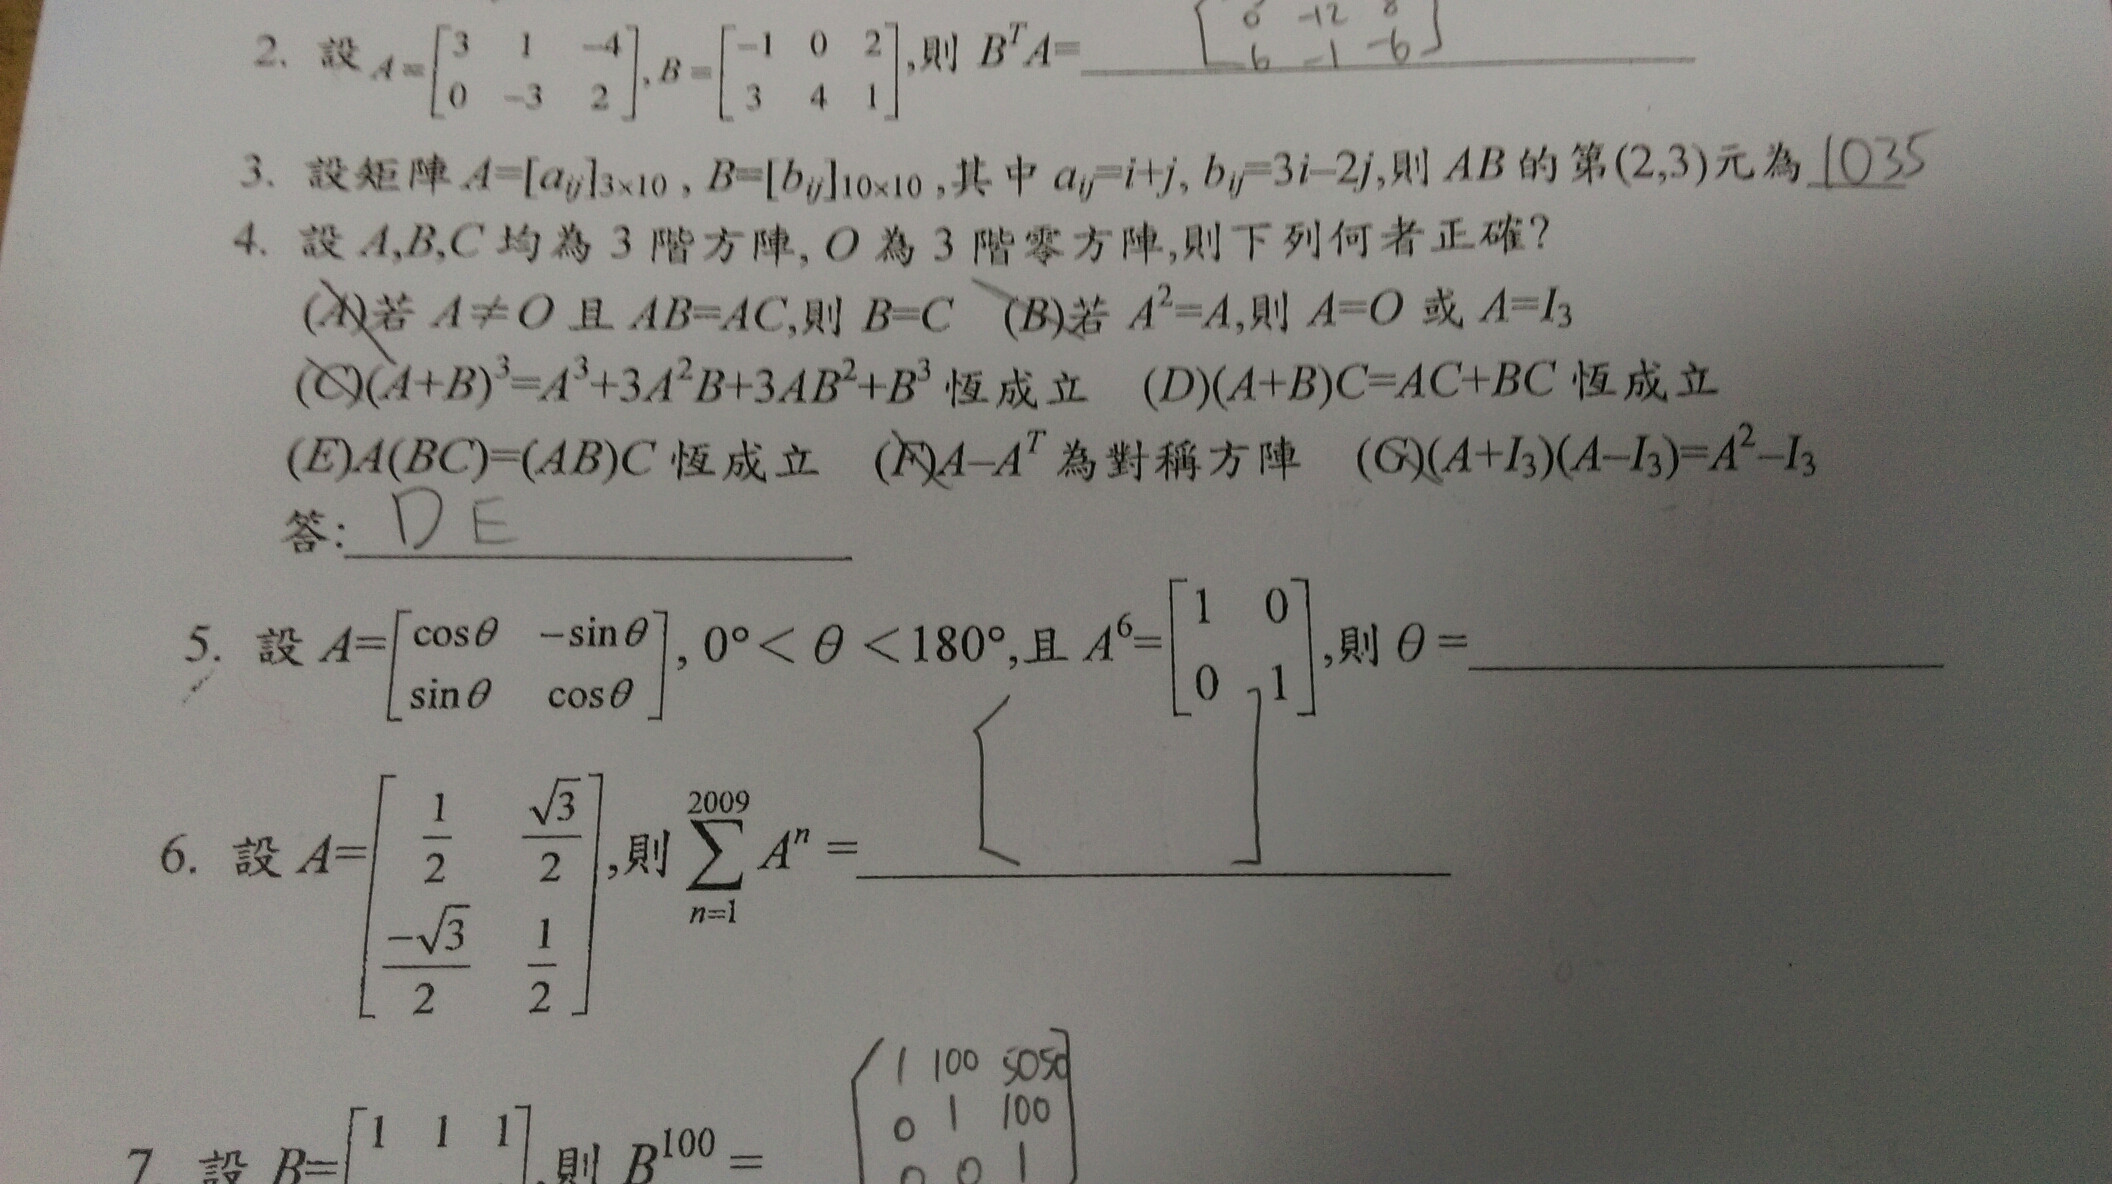 0 -12 8
6 -1 -6
2. 設 A=[3 1 -4; 0 -3 2], B=[-1 0 2; 3 4 1],則 BᵀA=
3. 設矩陣 A=[aᵢⱼ]₃ₓ₁₀ , B=[bᵢⱼ]₁₀ₓ₁₀ ,其中 aᵢⱼ=i+j, bᵢⱼ=3i–2j,則 AB 的第(2,3)元為 1035
4. 設 A,B,C 均為 3 階方陣, O 為 3 階零方陣,則下列何者正確?
(A)若 A≠O 且 AB=AC,則 B=C (B)若 A²=A,則 A=O 或 A=I₃
(C)(A+B)³=A³+3A²B+3AB²+B³ 恆成立 (D)(A+B)C=AC+BC 恆成立
(E)A(BC)=(AB)C 恆成立 (F)A–Aᵀ 為對稱方陣 (G)(A+I₃)(A–I₃)=A²–I₃
答: D E
5. 設 A=[cosθ -sinθ; sinθ cosθ], 0°< θ <180°,且 A⁶=[1 0; 0 1],則 θ =
6. 設 A=[1/2 √3/2; -√3/2 1/2],則 ∑ₙ₌₁²⁰⁰⁹ Aⁿ =
1 100 5050
0 1 100
0 0 1
7. 設 B=[1 1 1],則 B¹⁰⁰ =